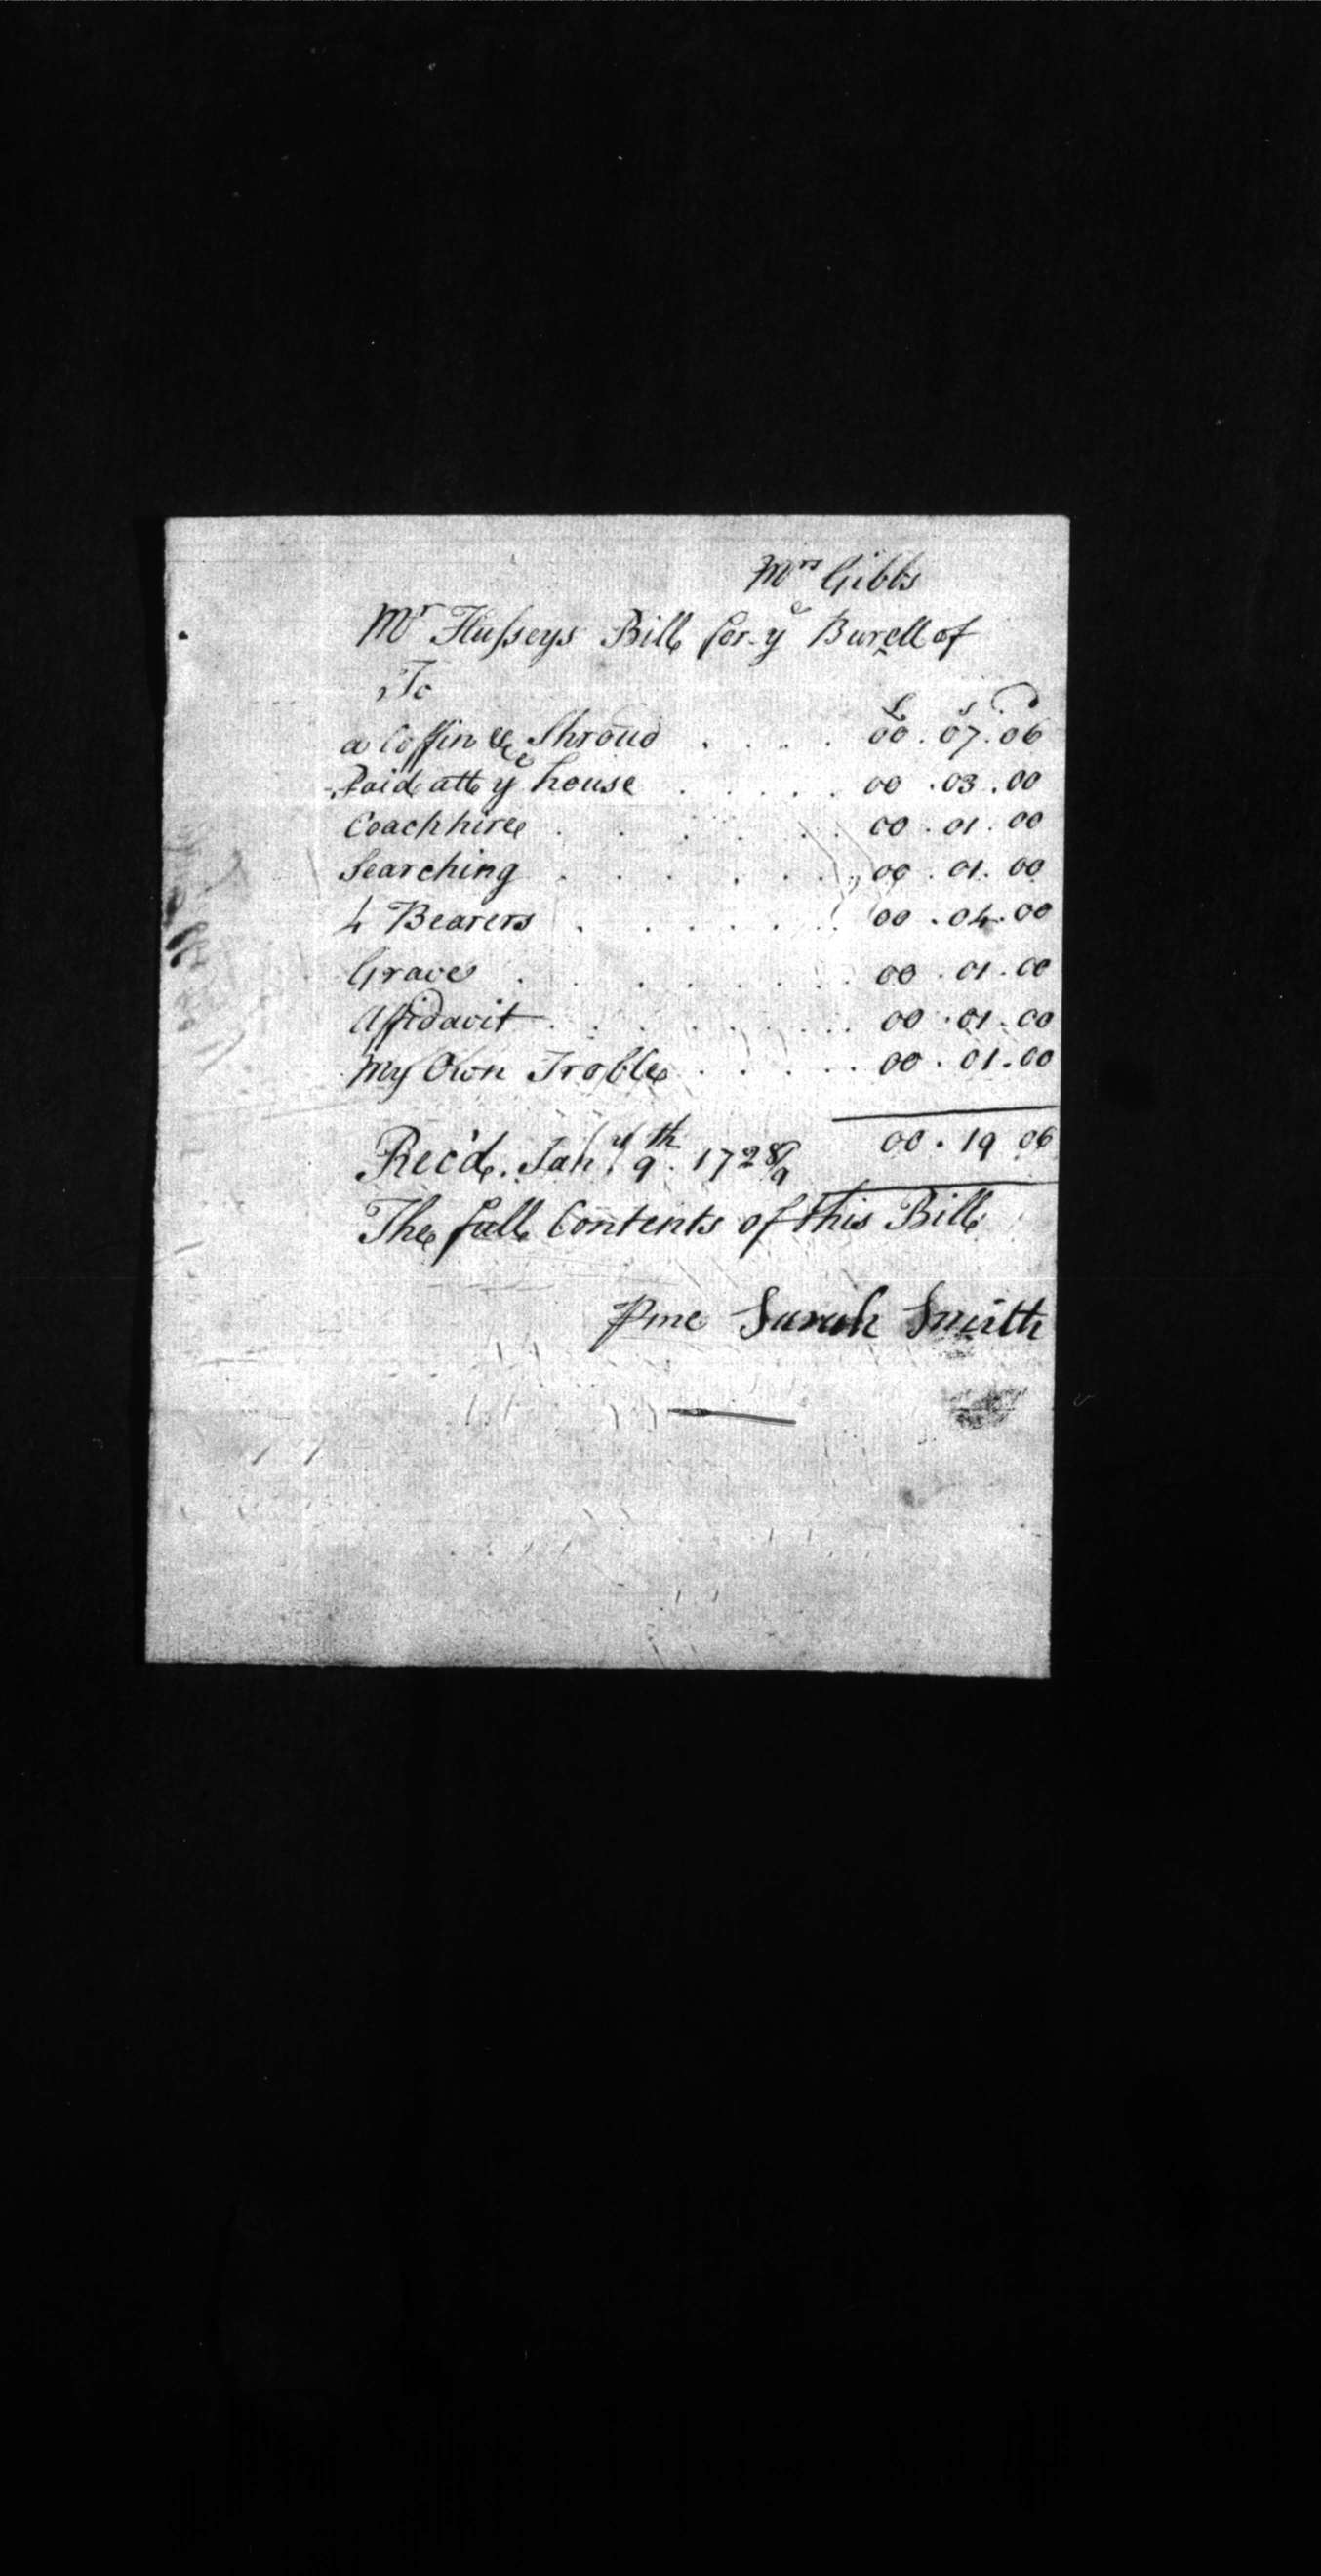 Mrs Gibbs
Mr Husseys Bill for ye Burell of
To
£ s D
a Coffin & Shroud . . . . 00 . 07 . 06
Paid att ye house . . . . . 00 . 03 . 00
Coach hire . . . . . . 00 . 01 . 00
Searching . . . . . . . 00 . 01 . 00
4 Bearers . . . . . . 00 . 04 . 00
Grave . . . . . . . . 00 . 01 . 00
Affidavit . . . . . . . . 00 . 01 . 00
My Own Troble . . . . . 00 . 01 . 00
00 . 19 06
Rec'd. Jan.y 9th. 1728/9
The full Contents of this Bill
P me Sarah Smith